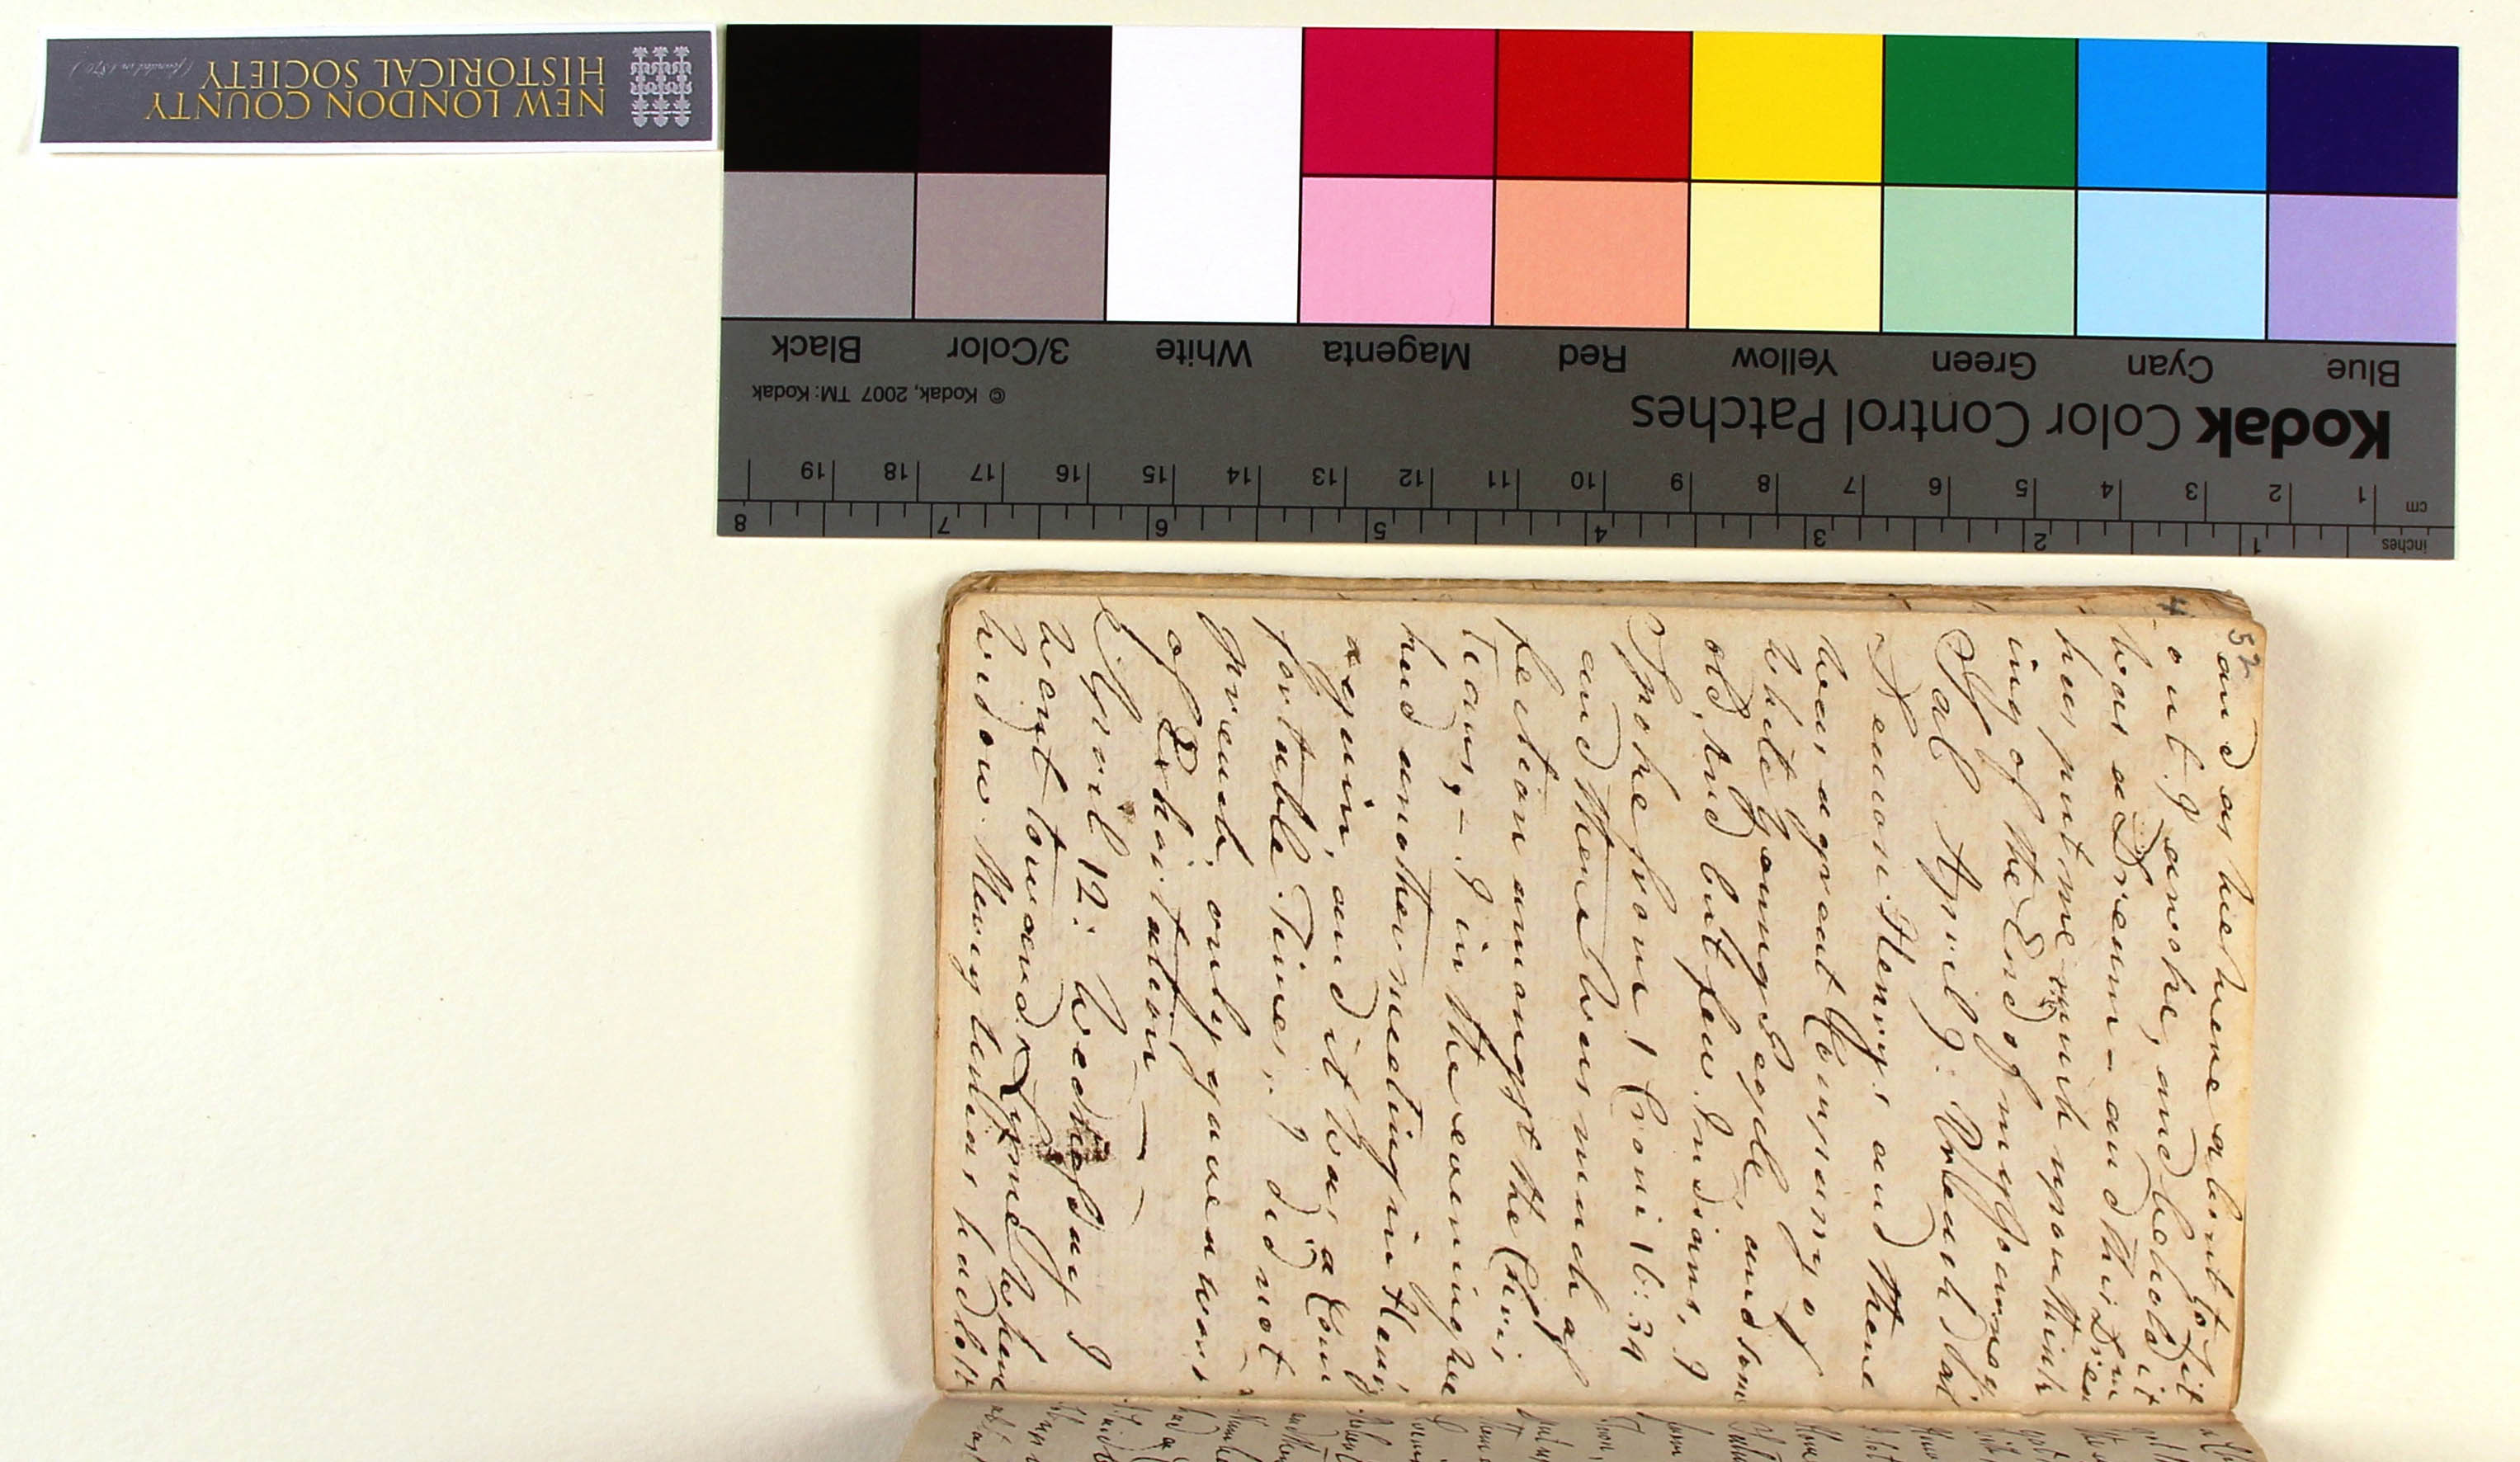 NEW LONDON COUNTY
HISTORICAL SOCIETY
(founded in 1870)
Black
3/Color
White
Magenta
Red
Yellow
Green
Cyan
Blue
© Kodak, 2007 TM: Kodak
Kodak Color Control Patches
cm 1 2 3 4 5 6 7 8 9 10 11 12 13 14 15 16 17 18 19
inches 1 2 3 4 5 6 7 8
52
4
and as we were about to Sit
out I awoke, and behold it
was a Dream - and this Dream
has put me much upon think
ing of the End of my Journey.
Sab. April 9: Preachd at
Deacon Henrys and there
was a great Company of
White Young People, and some
old, and but few Indians, I
Spoke from 1 Croni 16:29
and there was much af
fection amongst the Chris
tians, - I in the evening we
had another meeting in Henrys
again, and it was a Com
fortable Time, I did not
preach, only gave a word
of Exhortation —
April 12: Wednesday I
went towards Lyme where
widow Mercy had lost